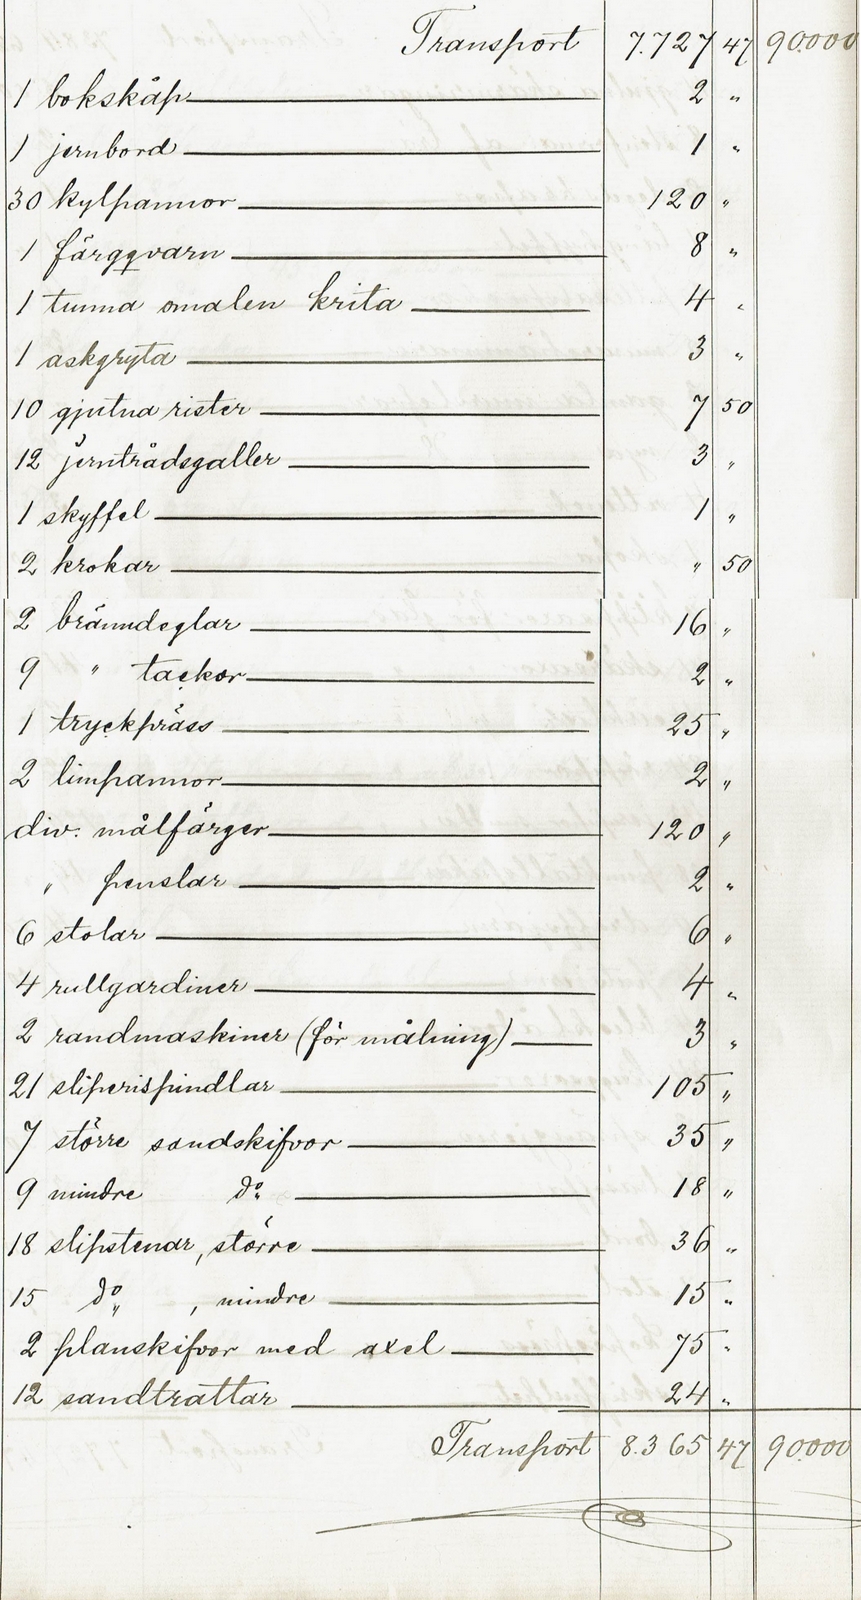 Transport 7.727 47 90.000
1 bokskåp 2 "
1 jernbord 1 "
30 kylpannor 120 "
1 färgqvarn 8 "
1 tunna omalen krita 4 "
1 askgryta 3 "
10 gjutna rister 7 50
12 jerntrådsgaller 3 "
1 skyffel 1 "
2 krokar " 50
2 bränndeglar 16 "
9 " tackor 2 "
1 tryckpräss 25 "
2 limpannor 2 "
div: målfärger 120 "
" penslar 2 "
6 stolar 6 "
4 rullgardiner 4 "
2 randmaskiner (för målning) 3 "
21 sliperispindlar 105 "
7 större sandskifvor 35 "
9 mindre do 18 "
18 slipstenar, större 36 "
15 do , mindre 15 "
2 planskifvor med axel 75 "
12 sandtrattar 24 "
Transport 8.365 47 90.000